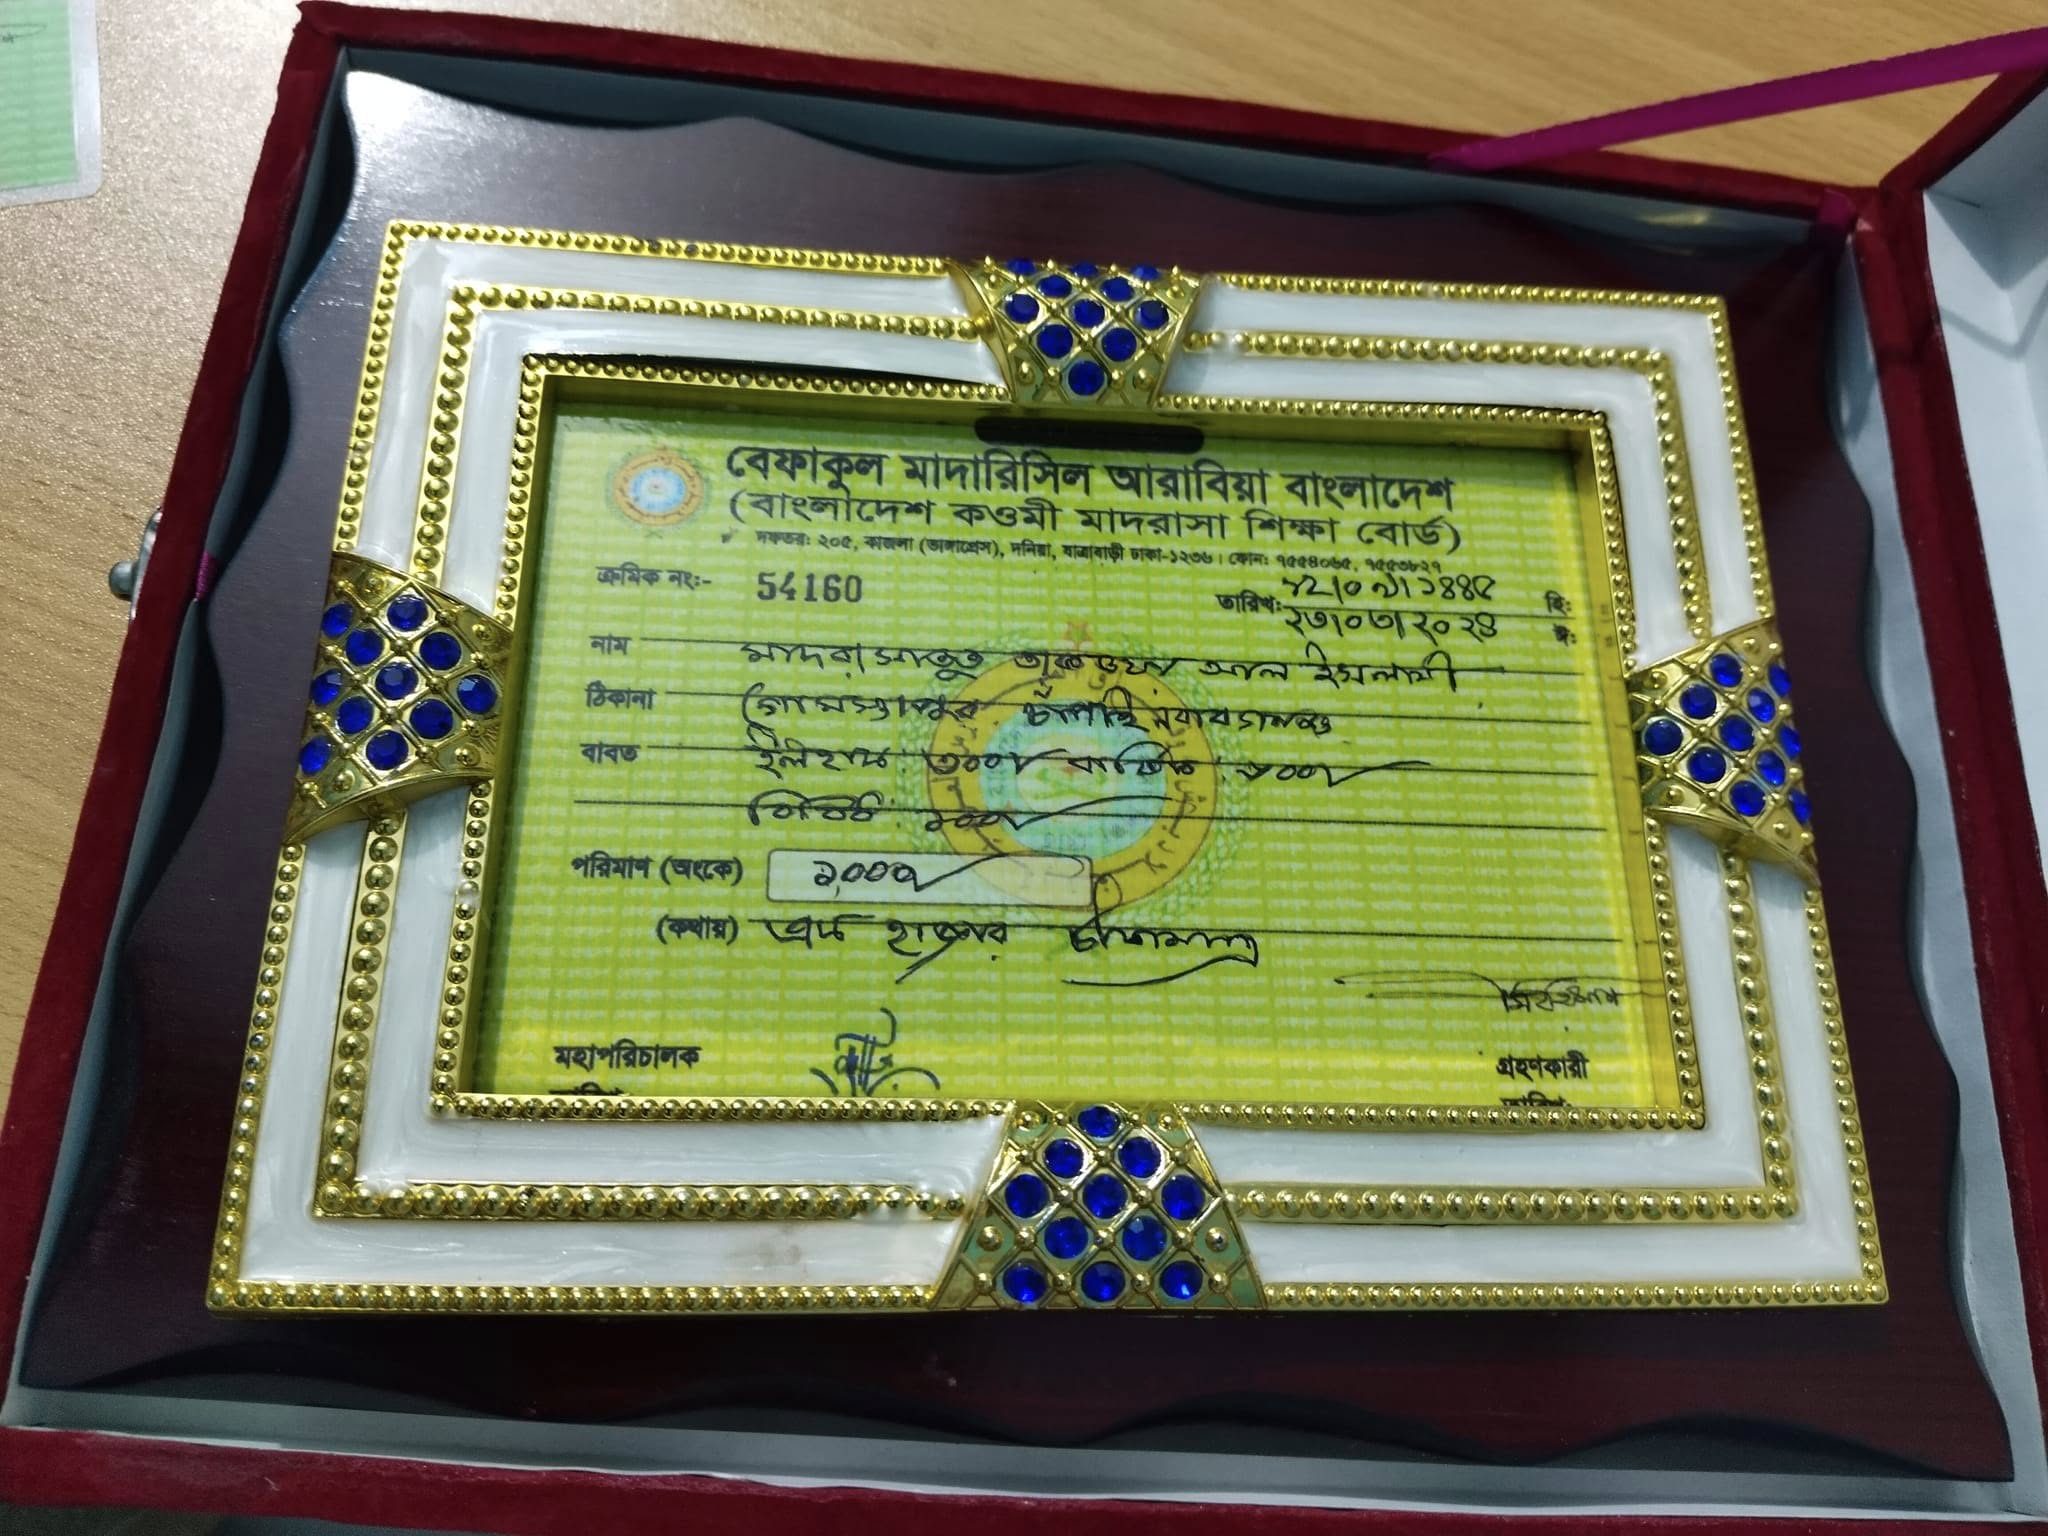 বেফাকুল মাদারিসিল আরাবিয়া বাংলাদেশ
(বাংলাদেশ কওমী মাদরাসা শিক্ষা বোর্ড)
দফতর: ২০৫, কাজলা (ভাঙ্গাপ্রেস), দনিয়া, যাত্রাবাড়ী ঢাকা-১২৩৬। ফোন: ৭৫৫৪০৬৫, ৭৫৫৩৮২৭
ক্রমিক নং:- 54160
তারিখ: ১২/০৯/১৪৪৫ হি:
২৩/০৩/২০২৪ ঈ:
নাম মাদরাসাতুত তাকওয়া আল ইসলামী
ঠিকানা গোমস্তাপুর চাঁপাই নবাবগঞ্জ
বাবত ইলহাক: ৩০০/ বার্ষিক: ৬০০/
বিবিধ: ১০০/
পরিমাণ (অংকে) ১,০০০/
(কথায়) এক হাজার টাকামাত্র
মহাপরিচালক
গ্রহণকারী
তারিখ:
তারিখ: